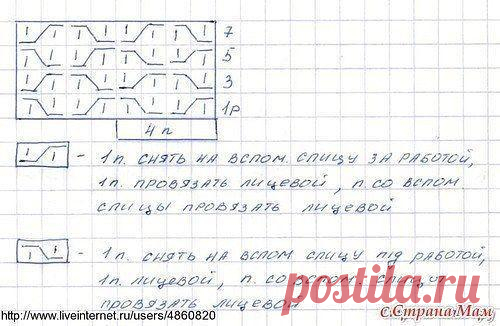 7
5
3
1р
4 п
- 1п. снять на вспом. спицу за работой,
1п. провязать лицевой, п. со вспом.
спицы провязать лицевой
- 1п. снять на вспом. спицу під работой,
1п. лицевой, п. со вспом. спицы
провязать лицевой
postila.ru
http://www.liveinternet.ru/users/4860820
с.СтранаМам